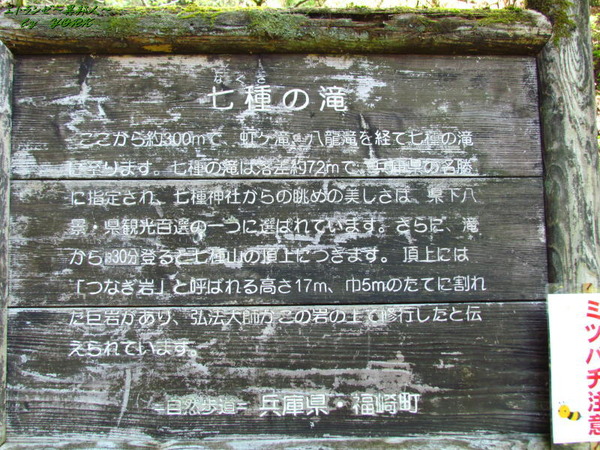 なぐさ
七種の滝
ここから約300mで、虹ヶ滝、八龍滝を経て七種の滝
に至ります。七種の滝は落差約72mで、兵庫県の名勝
に指定され、七種神社からの眺めの美しさは、県下八
景・県観光百選の一つに選ばれています。さらに、滝
から約30分登ると七種山の頂上につきます。頂上には
「つなぎ岩」と呼ばれる高さ17m、巾5mのたてに割れ
た巨岩があり、弘法大師がこの岩の上で修行したと伝
えられています。
=自然歩道= 兵庫県・福崎町
ミツバチ注意
by YORK